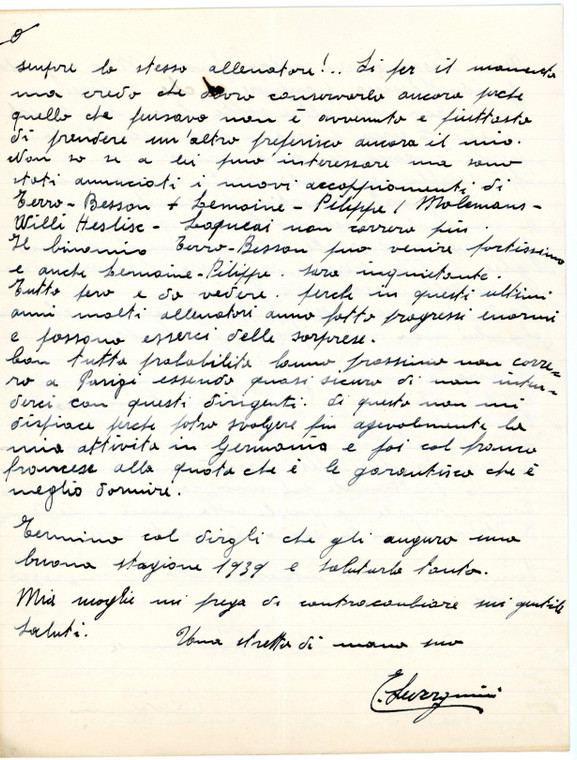 sempre lo stesso allenatore!.. Si per il momento
ma credo che dovro conservarlo ancora perche
quello che pensavo non è avvenuto e piuttosto
di prendere un'altro preferisco ancora il mio.
Non so se a lei puo interessare ma sono
stati annunciati i nuovi accoppiamenti di
Terro-Besson + Lemoine-Pilippe /
Willi - non correra piu.
Il binomio Terro-Besson puo venire fortissimo
e anche Lemoine-Pilippe. sara inquietante.
Tutto pero e da vedere. perche in questi ultimi
anni molti allenatori anno fatto progressi enormi
e possono esserci delle sorprese.
Con tutta probabilita lanno prossimo non corre-
ro a Parigi essendo quasi sicuro di non inten-
derci con questi dirigenti. di questo non mi
dispiace perche potro svolgere piu agevolmente la
mia attivita in Germania e poi col franco
francese alla quota che è le garantisco che è
meglio dormire.
Termino col dirgli che gli auguro una
buona stagione 1939 e salutarla tanto.
Mia moglie mi prega di contracambiare suoi gentili
saluti. Una stretta di mano suo
E.